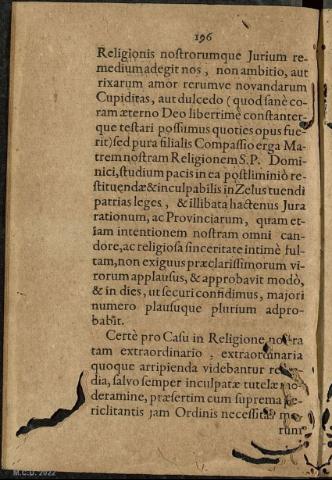 196
Religionis nostrorumque Jurium re-
medium adegit nos, non ambitio, aut
rixarum amor rerumve novandarum
Cupiditas, aut dulcedo (quod sanè co-
ram æterno Deo liberrimè constanter-
que testari possumus quoties opus fue-
rit) sed pura filialis Compassio erga Ma-
trem nostram Religionem S.P. Domi-
nici, studium pacis in ea postliminiò re-
stituendæ & inculpabilis in Zelus tuendi
patrias leges, & illibata hactenus Jura
rationum, ac Provinciarum, quam et-
iam intentionem nostram omni can-
dore, ac religiosa sinceritate intimè ful-
tam, non exiguus præclarissimorum vi-
rorum applausus, & approbavit modò,
& in dies, ut securi confidimus, majori
numero plausuque plurium adpro-
babit.
Certè pro Casu in Religione nostra
tam extraordinario, extraordinaria
quoque arripienda videbantur
dia, salvo semper inculpatæ tutelæ mo-
deramine, præsertim cum suprema pe-
riclitantis jam Ordinis necessitas
rum
M.C.D. 2022